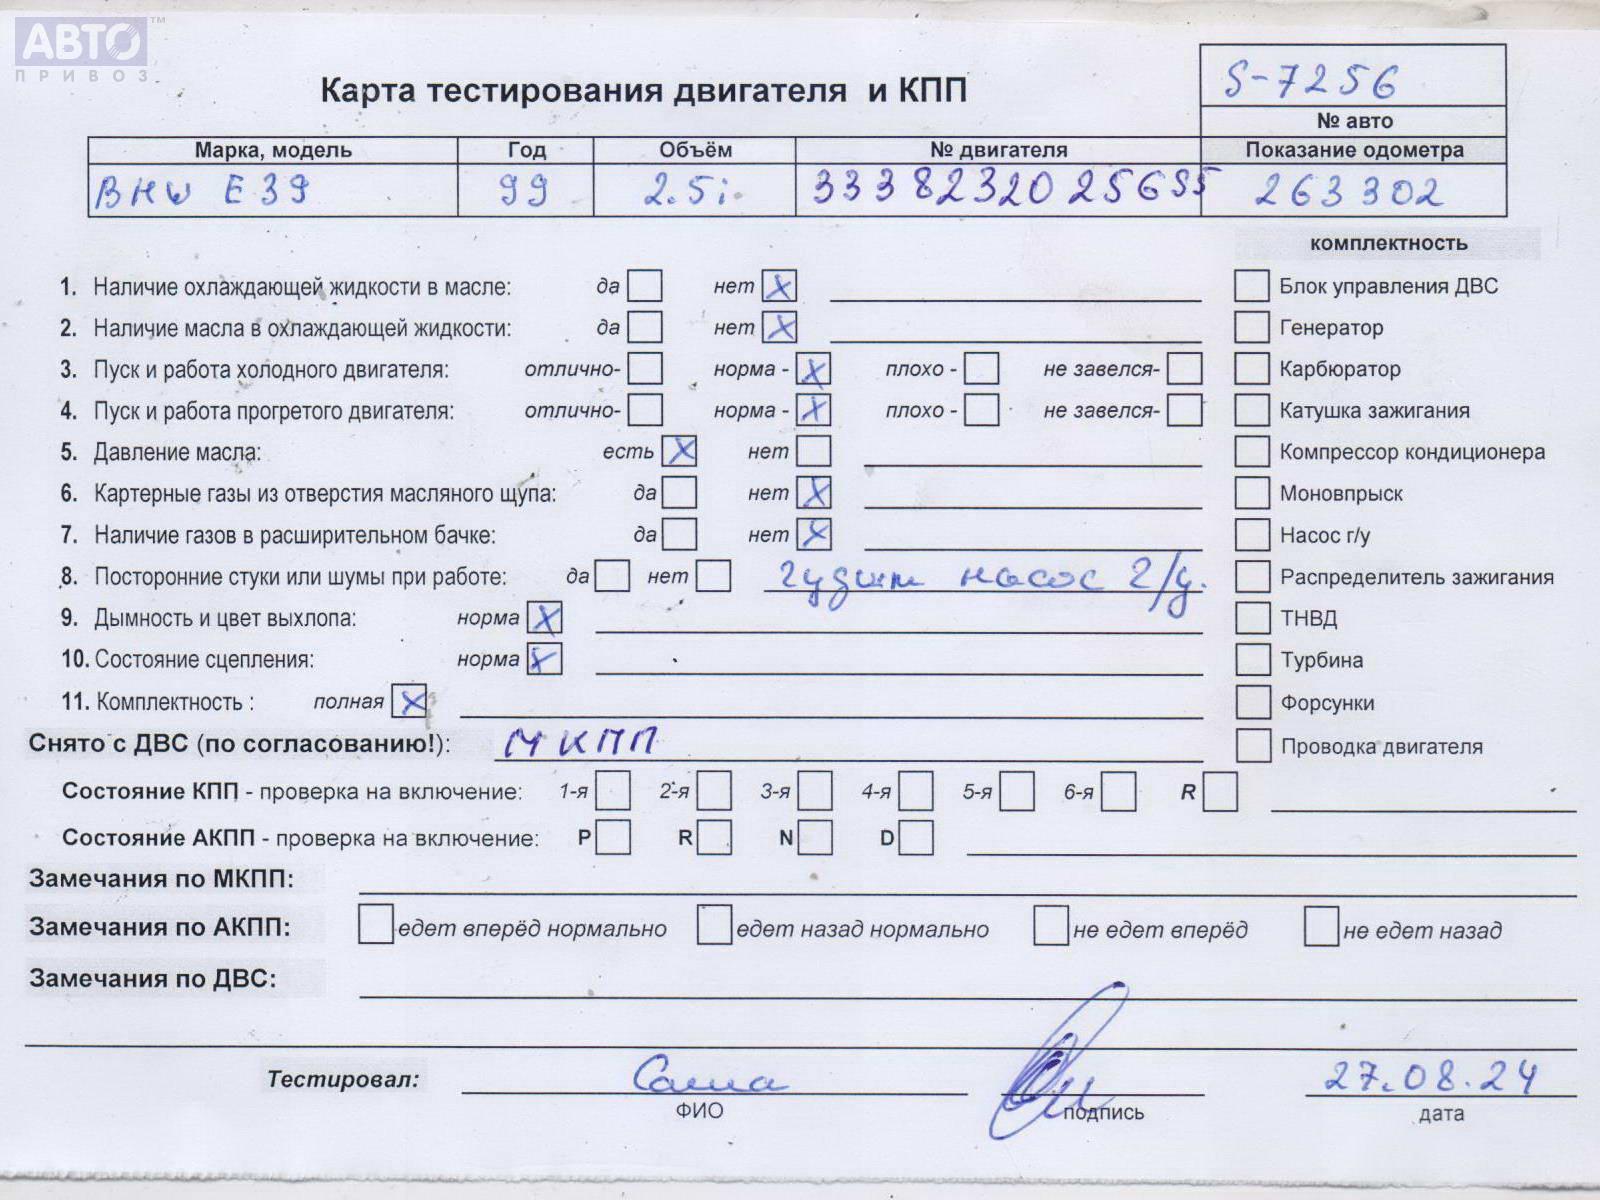 АВТО ™
ПРИВОЗ
S-7256
Карта тестирования двигателя и КПП
№ авто
Марка, модель Год Объём № двигателя Показание одометра
BMW E39 99 2.5i. 33382320256S5 263302
комплектность
1. Наличие охлаждающей жидкости в масле: да нет X Блок управления ДВС
2. Наличие масла в охлаждающей жидкости: да нет X Генератор
3. Пуск и работа холодного двигателя: отлично- норма - X плохо - не завелся- Карбюратор
4. Пуск и работа прогретого двигателя: отлично- норма - X плохо - не завелся- Катушка зажигания
5. Давление масла: есть X нет Компрессор кондиционера
6. Картерные газы из отверстия масляного щупа: да нет X Моновпрыск
7. Наличие газов в расширительном бачке: да нет X Насос г/у
8. Посторонние стуки или шумы при работе: да нет гудит насос г/у. Распределитель зажигания
9. Дымность и цвет выхлопа: норма X ТНВД
10. Состояние сцепления: норма X Турбина
11. Комплектность : полная X Форсунки
Снято с ДВС (по согласованию!): МКПП Проводка двигателя
Состояние КПП - проверка на включение: 1-я 2-я 3-я 4-я 5-я 6-я R
Состояние АКПП - проверка на включение: P R N D
Замечания по МКПП:
Замечания по АКПП: едет вперёд нормально едет назад нормально не едет вперёд не едет назад
Замечания по ДВС:
Тестировал: Саша 27.08.24
ФИО подпись дата